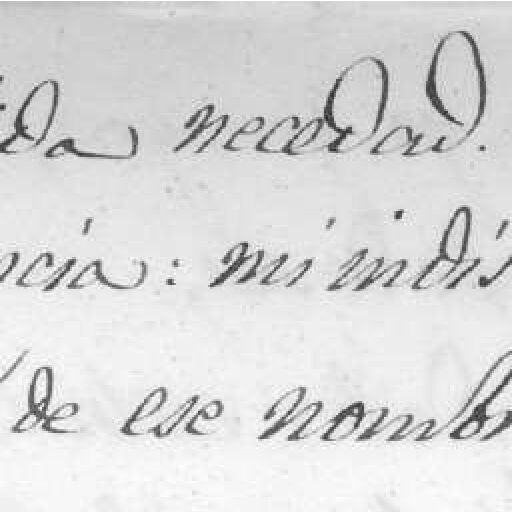 ida necedad.
ncia: mi indis
de ese nombr